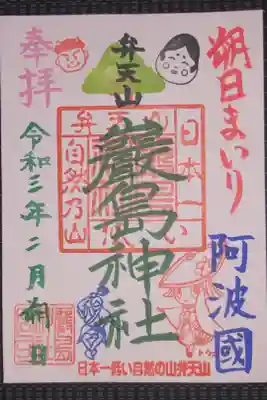 朔日まいり
阿波國
弁天山
嚴島神社
奉拝
令和三年二月朔日
弁天山
日本一低い
自然乃山
節分
日本一低い自然の山弁天山